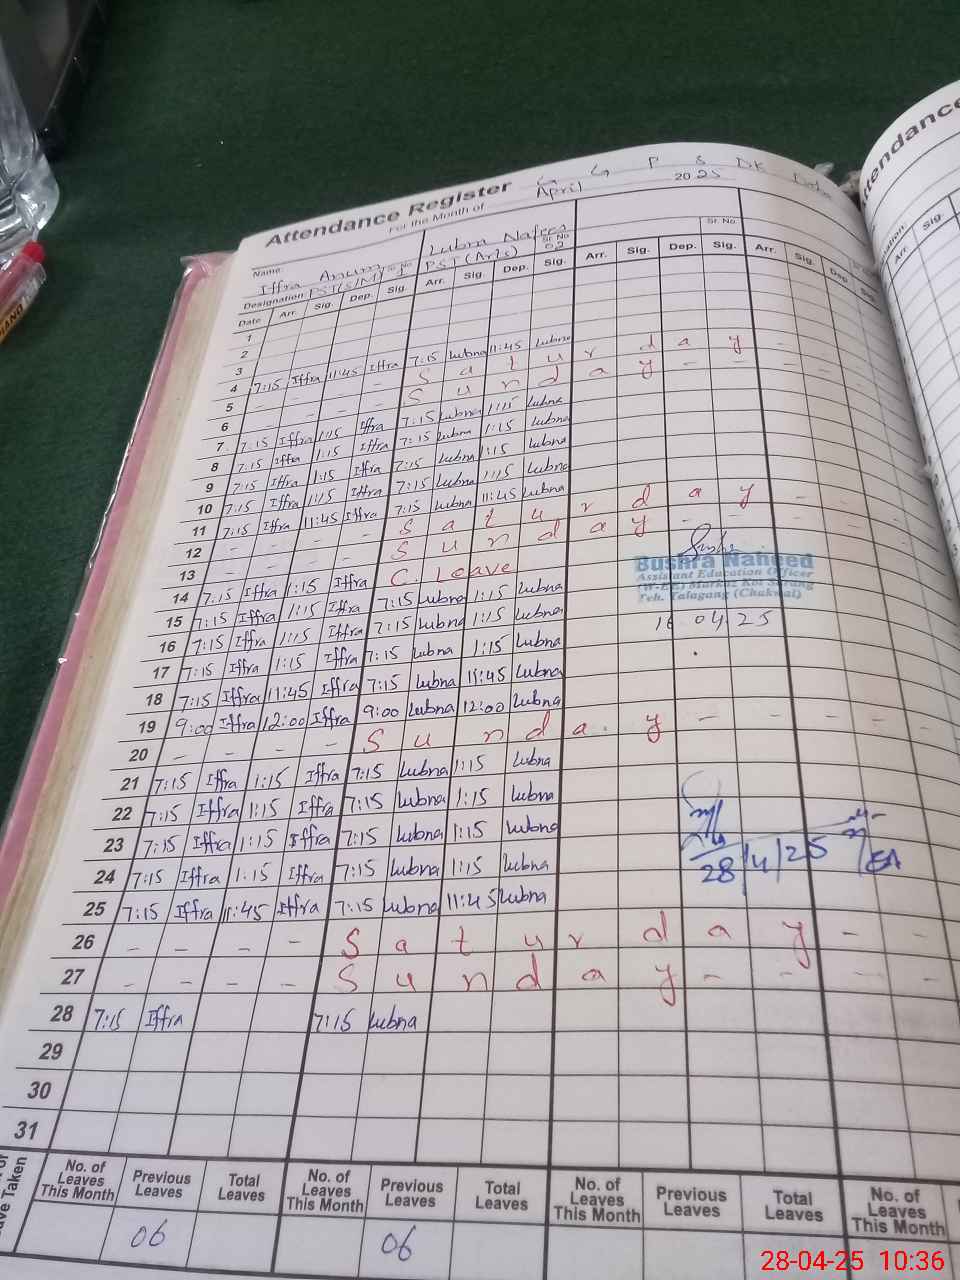 Attendance Register G G P S DK
For the Month of April 2025
Name: Iffra Anum Sr. No. 1 Lubna Nafees Sr. No. 02 Sr. No.
Designation: PST(S/M) PST(Arts)
Date Arr. Sig. Dep. Sig. Arr. Sig. Dep. Sig. Arr. Sig. Dep. Sig. Arr. Sig. Dep. Sig.
1
2
3
4 7:15 Iffra 11:45 Iffra 7:15 Lubna 11:45 Lubna
5 - - - - S a t u r d a y -
6 - - - - S u n d a y - - -
7 7:15 Iffra 1:15 Iffra 7:15 Lubna 1:15 Lubna
8 7:15 Iffra 1:15 Iffra 7:15 Lubna 1:15 Lubna
9 7:15 Iffra 1:15 Iffra 7:15 Lubna 1:15 Lubna
10 7:15 Iffra 1:15 Iffra 7:15 Lubna 1:15 Lubna
11 7:15 Iffra 11:45 Iffra 7:15 Lubna 11:45 Lubna
12 - - - - S a t u r d a y - -
13 - - - - S u n d a y - - -
14 7:15 Iffra 1:15 Iffra C. Leave
15 7:15 Iffra 1:15 Iffra 7:15 Lubna 1:15 Lubna
16 7:15 Iffra 1:15 Iffra 7:15 Lubna 1:15 Lubna
17 7:15 Iffra 1:15 Iffra 7:15 Lubna 1:15 Lubna
18 7:15 Iffra 11:45 Iffra 7:15 Lubna 11:45 Lubna
19 9:00 Iffra 12:00 Iffra 9:00 Lubna 12:00 Lubna
20 - - - - S u n d a y - - - -
21 7:15 Iffra 1:15 Iffra 7:15 Lubna 1:15 Lubna
22 7:15 Iffra 1:15 Iffra 7:15 Lubna 1:15 Lubna
23 7:15 Iffra 1:15 Iffra 7:15 Lubna 1:15 Lubna
24 7:15 Iffra 1:15 Iffra 7:15 Lubna 1:15 Lubna
25 7:15 Iffra 11:45 Iffra 7:15 Lubna 11:45 Lubna
26 - - - - S a t u r d a y - -
27 - - - - S u n d a y - - - -
28 7:15 Iffra 7:15 Lubna
29
30
31
Bushra Naheed
Assistant Education Officer
(W-EE) Markaz Kot Sarang
Teh. Talagang (Chakwal)
16 04 25
28/4/25
No. of Leaves This Month Previous Leaves Total Leaves No. of Leaves This Month Previous Leaves Total Leaves No. of Leaves This Month Previous Leaves Total Leaves No. of Leaves This Month
06 06
Attendance
Arr. Sig.
28-04-25 10:36